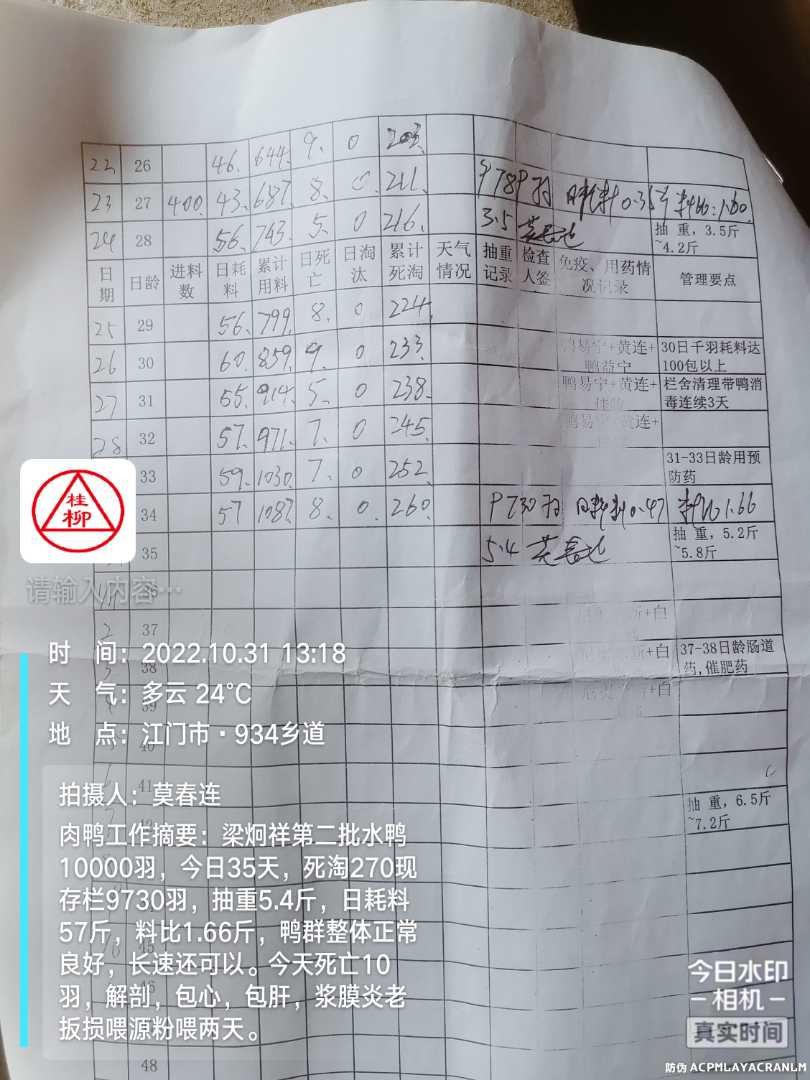 22 26 46. 644. 9. 0 203.
23 27 400. 43. 687. 8. 0. 211. 9789羽 日耗料0.35斤 料比:1.60
24 28 56. 743. 5. 0 216. 3.5 抽 重,3.5斤~4.2斤
日期 日龄 进料数 日耗料 累计用料 日死亡 日淘汰 累计死淘 天气情况 抽重记录 检查人签 免疫、用药情况记录 管理要点
25 29 56. 799. 8. 0 224.
26 30 60. 859. 9. 0 233. 鸭易宁+黄连+鸭益宁 30日千羽耗料达100包以上
27 31 55. 914. 5. 0 238. 鸭易宁+黄连+ 栏舍清理带鸭消毒连续3天
28 32 57. 971. 7. 0 245. 鸭易宁+黄连+
33 59. 1030. 7. 0 252. 31-33日龄用预防药
34 57 1087. 8. 0. 260. 9730羽 日耗料0.47 料比1.66
35 5.4 抽 重,5.2斤~5.8斤
37 +白
38 +白 37-38日龄肠道药,催肥药
39 +白
40
41
抽 重,6.5斤~7.2斤
45
48
桂柳
请输入内容…
时 间:2022.10.31 13:18
天 气:多云 24℃
地 点:江门市·934乡道
拍摄人:莫春连
肉鸭工作摘要:梁炯祥第二批水鸭
10000羽,今日35天,死淘270现
存栏9730羽,抽重5.4斤,日耗料
57斤,料比1.66斤,鸭群整体正常
良好,长速还可以。今天死亡10
羽,解剖,包心,包肝,浆膜炎老
扳损喂源粉喂两天。
今日水印
-相机-
真实时间
防伪 ACPMLAYACRANLM